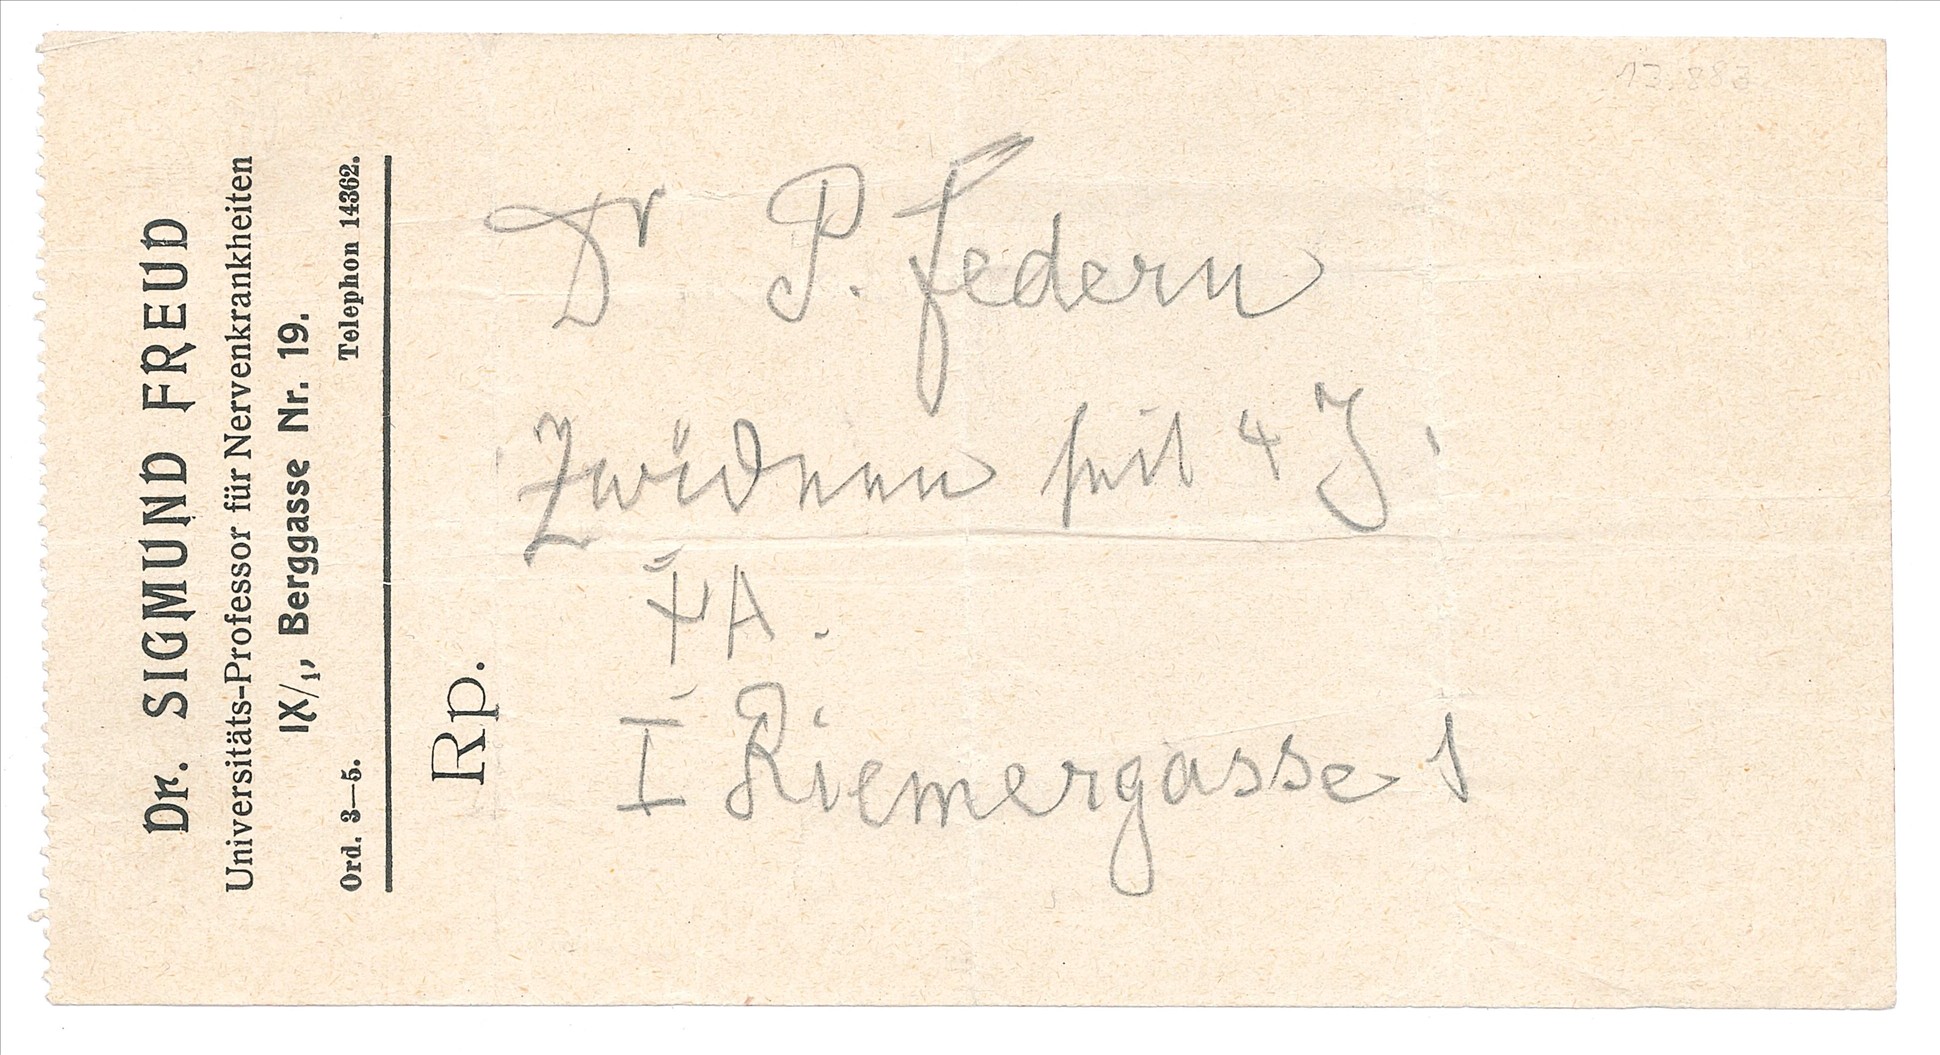 Dr. SIGMUND FREUD
Universitäts-Professor für Nervenkrankheiten
IX/1, Berggasse Nr. 19.
Ord. 3—5. Telephon 14362.
Rp.
13.883
Dr P. Federn
seit 4 J.
ΨA.
I Riemergasse 1